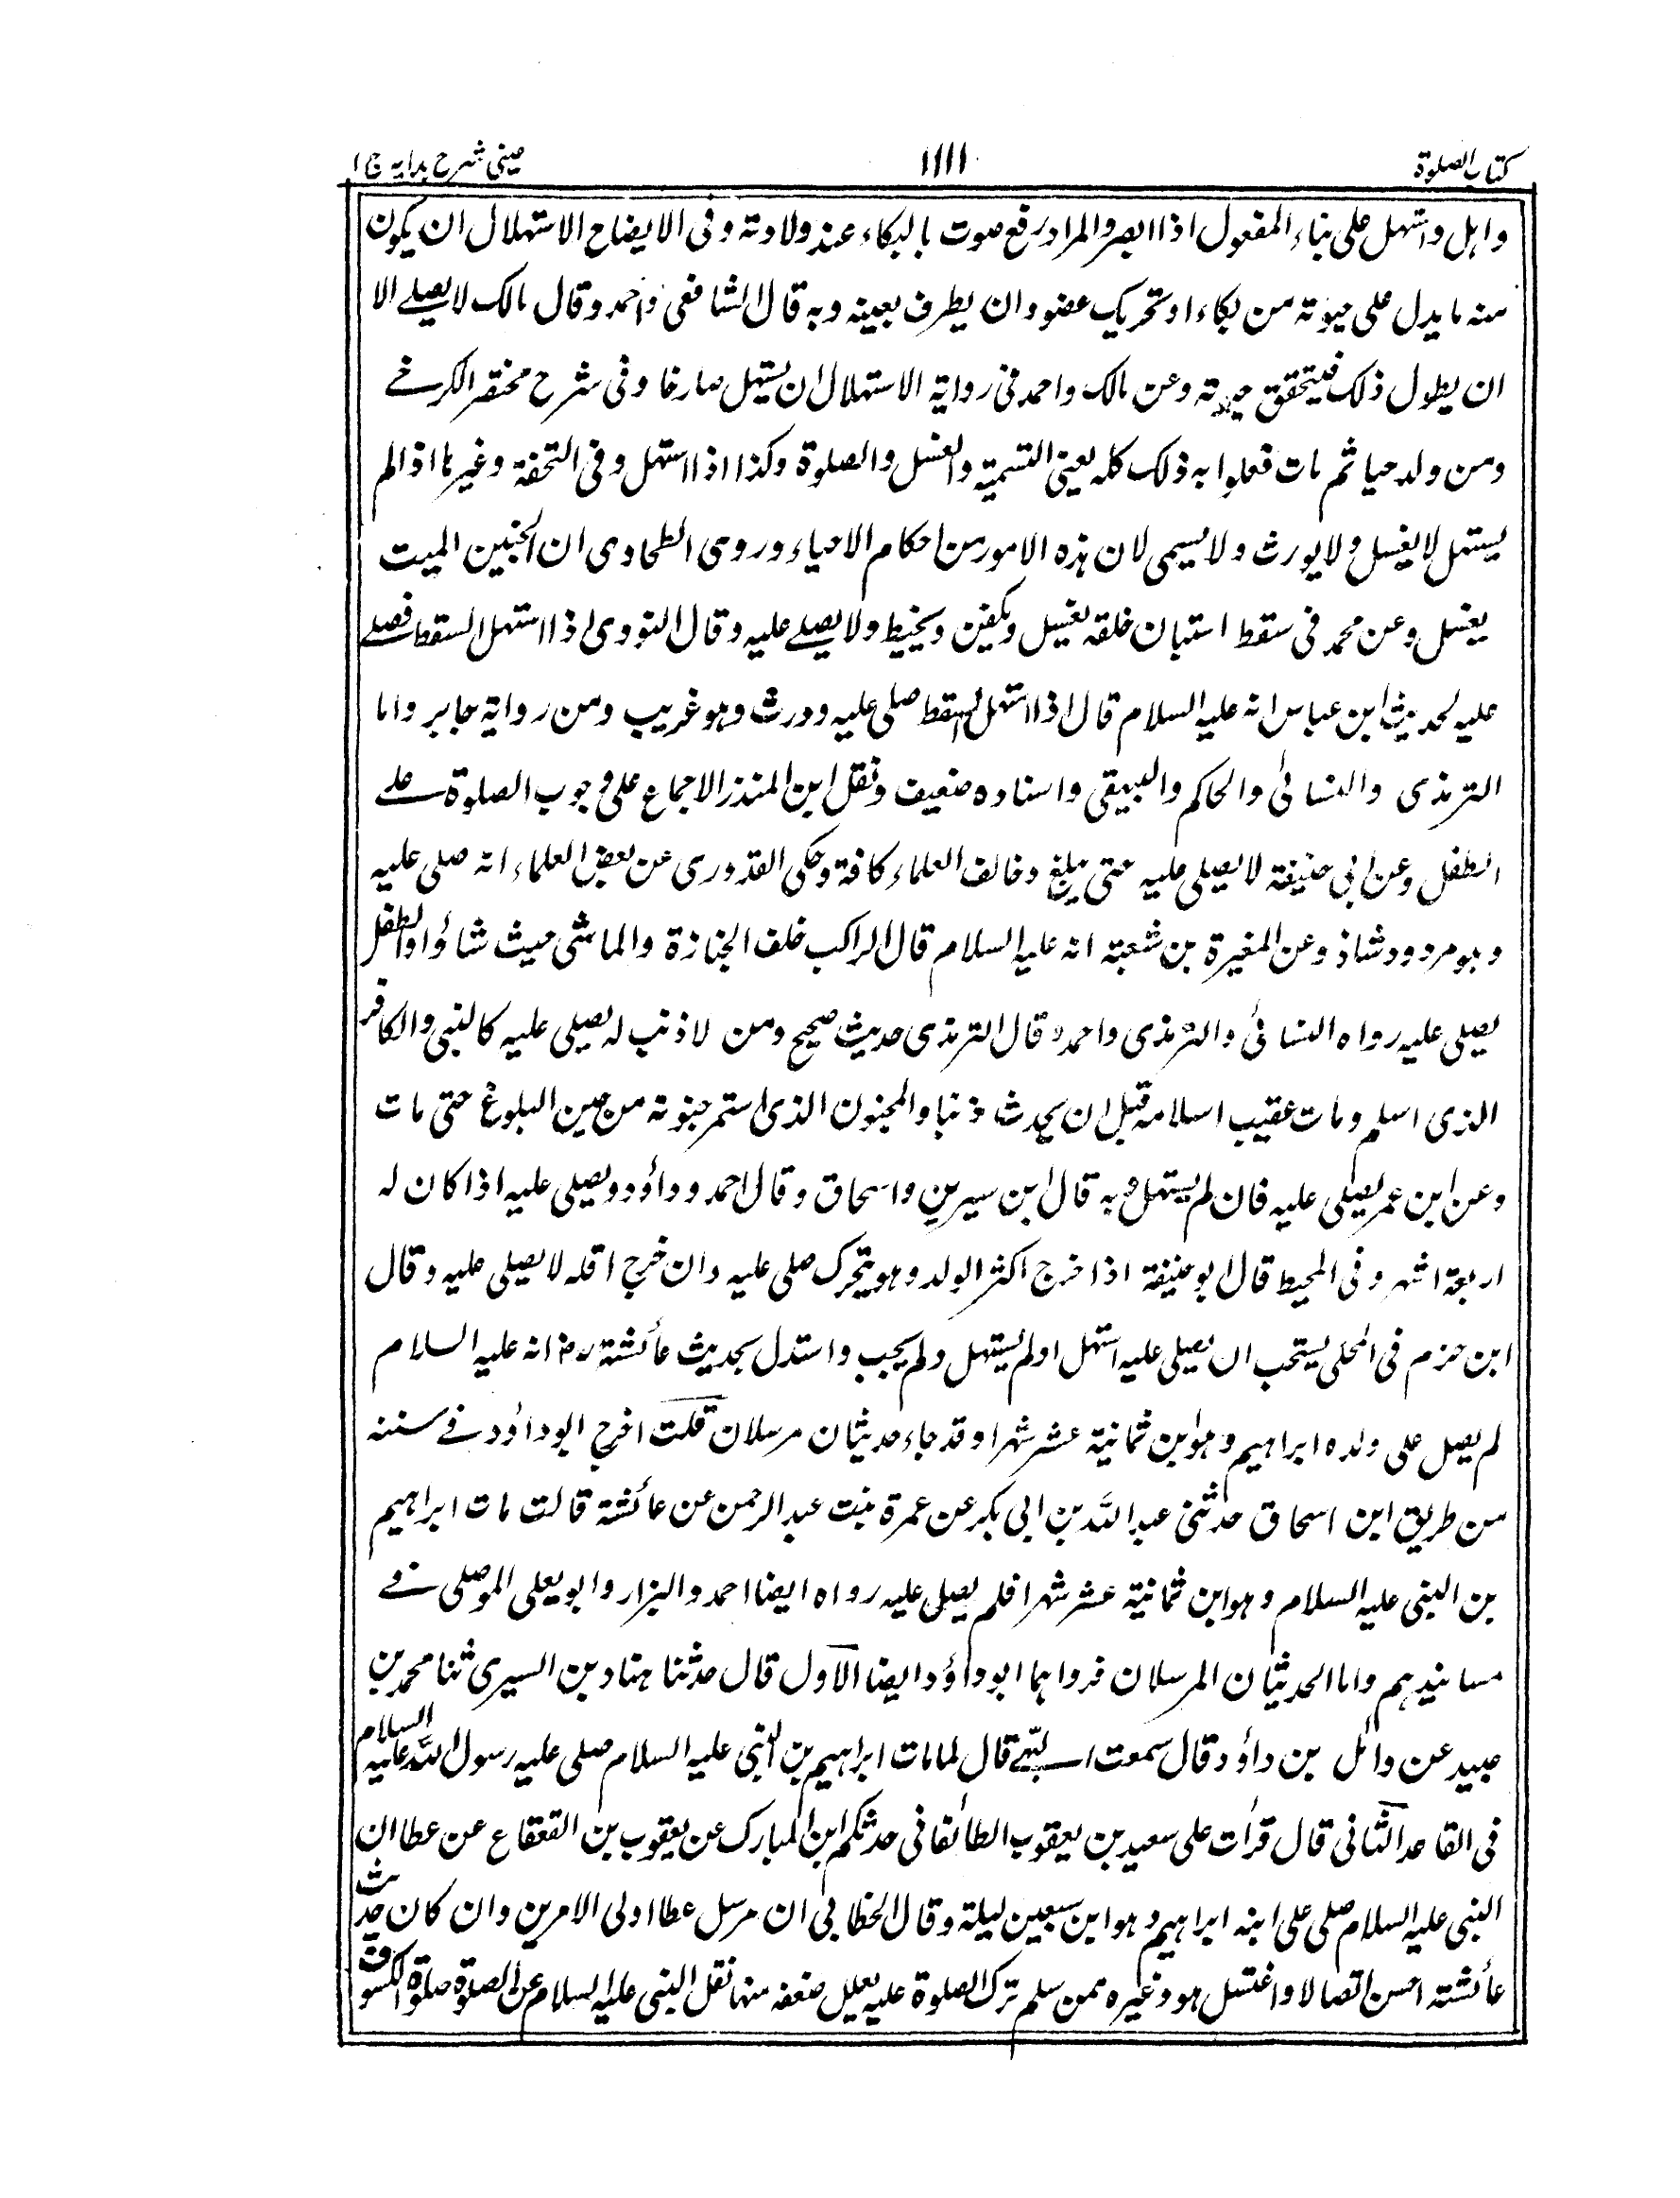 كتاب الصلوة
١١١١
عينى شرح هدايه ج ١
واهل واستهل على بناء المفعول اذا ابصر والمراد رفع صوت بالبكاء عند ولادته وفى الايضاح الاستهلال ان يكون
منه ما يدل على حيوته من بكاء او تحريك عضو وان يطرف بعينه وبه قال الشافعى واحمد وقال مالك لا يصلے الا
ان يطول ذلك فيتحقق حيوته وعن مالك واحمد فى رواية الاستهلال ان يستهل صارخا وفى شرح مختصر الكرخے
ومن ولد حيا ثم مات فعلوا به ذلك كله يعنى التسمية والغسل والصلوة وكذا اذا استهل وفى التحفة وغيرها اذا لم
يستهل لا يغسل ولا يورث ولا يسمى لان هذه الامور من احكام الاحياء وروى الطحاوى ان الجنين الميت
يغسل وعن محمد فى سقط استبان خلقه يغسل ويكفن ويحنط ولا يصلے عليه وقال النووى اذا استهل السقط فصلے
عليه لحديث ابن عباس انه عليه السلام قال اذا استهل السقط صلى عليه وورث وهو غريب ومن رواية جابر واما
الترمذى والنسائى والحاكم والبيهقى واسناده ضعيف ونقل ابن المنذر الاجماع على وجوب الصلوة علے
الطفل وعن ابى حنيفة لا يصلى عليه حتى يبلغ وخالف العلماء كافة وحكى القدورى عن بعض العلماء انه صلى عليه
وهو مردود شاذ وعن المغيرة بن شعبة انه عليه السلام قال الراكب خلف الجنازة والماشى حيث شاؤا والطفل
يصلى عليه رواه النسائى والترمذى واحمد وقال الترمذى حديث صحيح ومن لا ذنب له يصلى عليه كالنبى والكافر
الذى اسلم ومات عقيب اسلامه قبل ان يحدث ذنبا والمجنون الذى استمر جنونه من حين البلوغ حتى مات
وعن ابن عمر يصلى عليه فان لم يستهل وبه قال ابن سيرين واسحاق وقال احمد وداؤد ويصلى عليه اذا كان له
اربعة اشهر وفى المحيط قال ابو حنيفة اذا خرج اكثر الولد وهو يتحرك صلى عليه وان خرج اقله لا يصلى عليه وقال
ابن حزم فى المحلى يستحب ان يصلى عليه استهل او لم يستهل ولم يجب واستدل بحديث عائشة رض انه عليه السلام
لم يصل على ولده ابراهيم وهو ابن ثمانية عشر شهرا وقد جاء حديثان مرسلان قلت اخرج ابو داؤد فے سننه
من طريق ابن اسحاق حدثنى عبد الله بن ابى بكر عن عمرة بنت عبد الرحمن عن عائشة قالت مات ابراهيم
بن النبى عليه السلام وهو ابن ثمانية عشر شهرا فلم يصل عليه رواه ايضا احمد والبزار وابو يعلى الموصلى فے
مسانيدهم واما الحديثان المرسلان فرواهما ابو داؤد ايضا الاول قال حدثنا هناد بن السيرى ثنا محمد بن
عبيد عن وائل بن داؤد قال سمعت البهے قال لما مات ابراهيم بن النبى عليه السلام صلى عليه رسول الله عليه السلام
فى القاعد الثانى قال قرأت على سعيد بن يعقوب الطائقانى حدثكم ابن المبارك عن يعقوب بن القعقاع عن عطا ان
النبى عليه السلام صلى على ابنه ابراهيم وهو ابن سبعين ليلة وقال الخطابى ان مرسل عطا اولى الامرين وان كان حديث
عائشته احسن اتصالا واغتسل هو وغيره ممن سلم ترك الصلوة عليه يعلل ضعفه منها نقل النبى عليه السلام عن الصلوة صلوة الكسوف